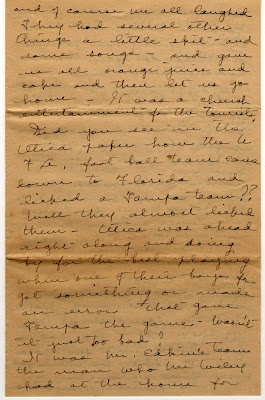 and of course we all laughed
They had several other
things a little skit - and
some songs - and gave
us all orange juice and
cake and then let us go
home - It was a church
entertainment for the tourists.
Did you see in the
Utica paper how the U
F A, foot ball team came
down to Florida and
licked a Tampa team??
Well they almost licked
them - Utica was ahead
right along and doing
by far the best playing
when one of their boys for-
got something or made
an error that gave
Tampa the game - Wasn't
it just too bad?
It was Mr. Edkins team
the man who Mr Wiley
had at the home for